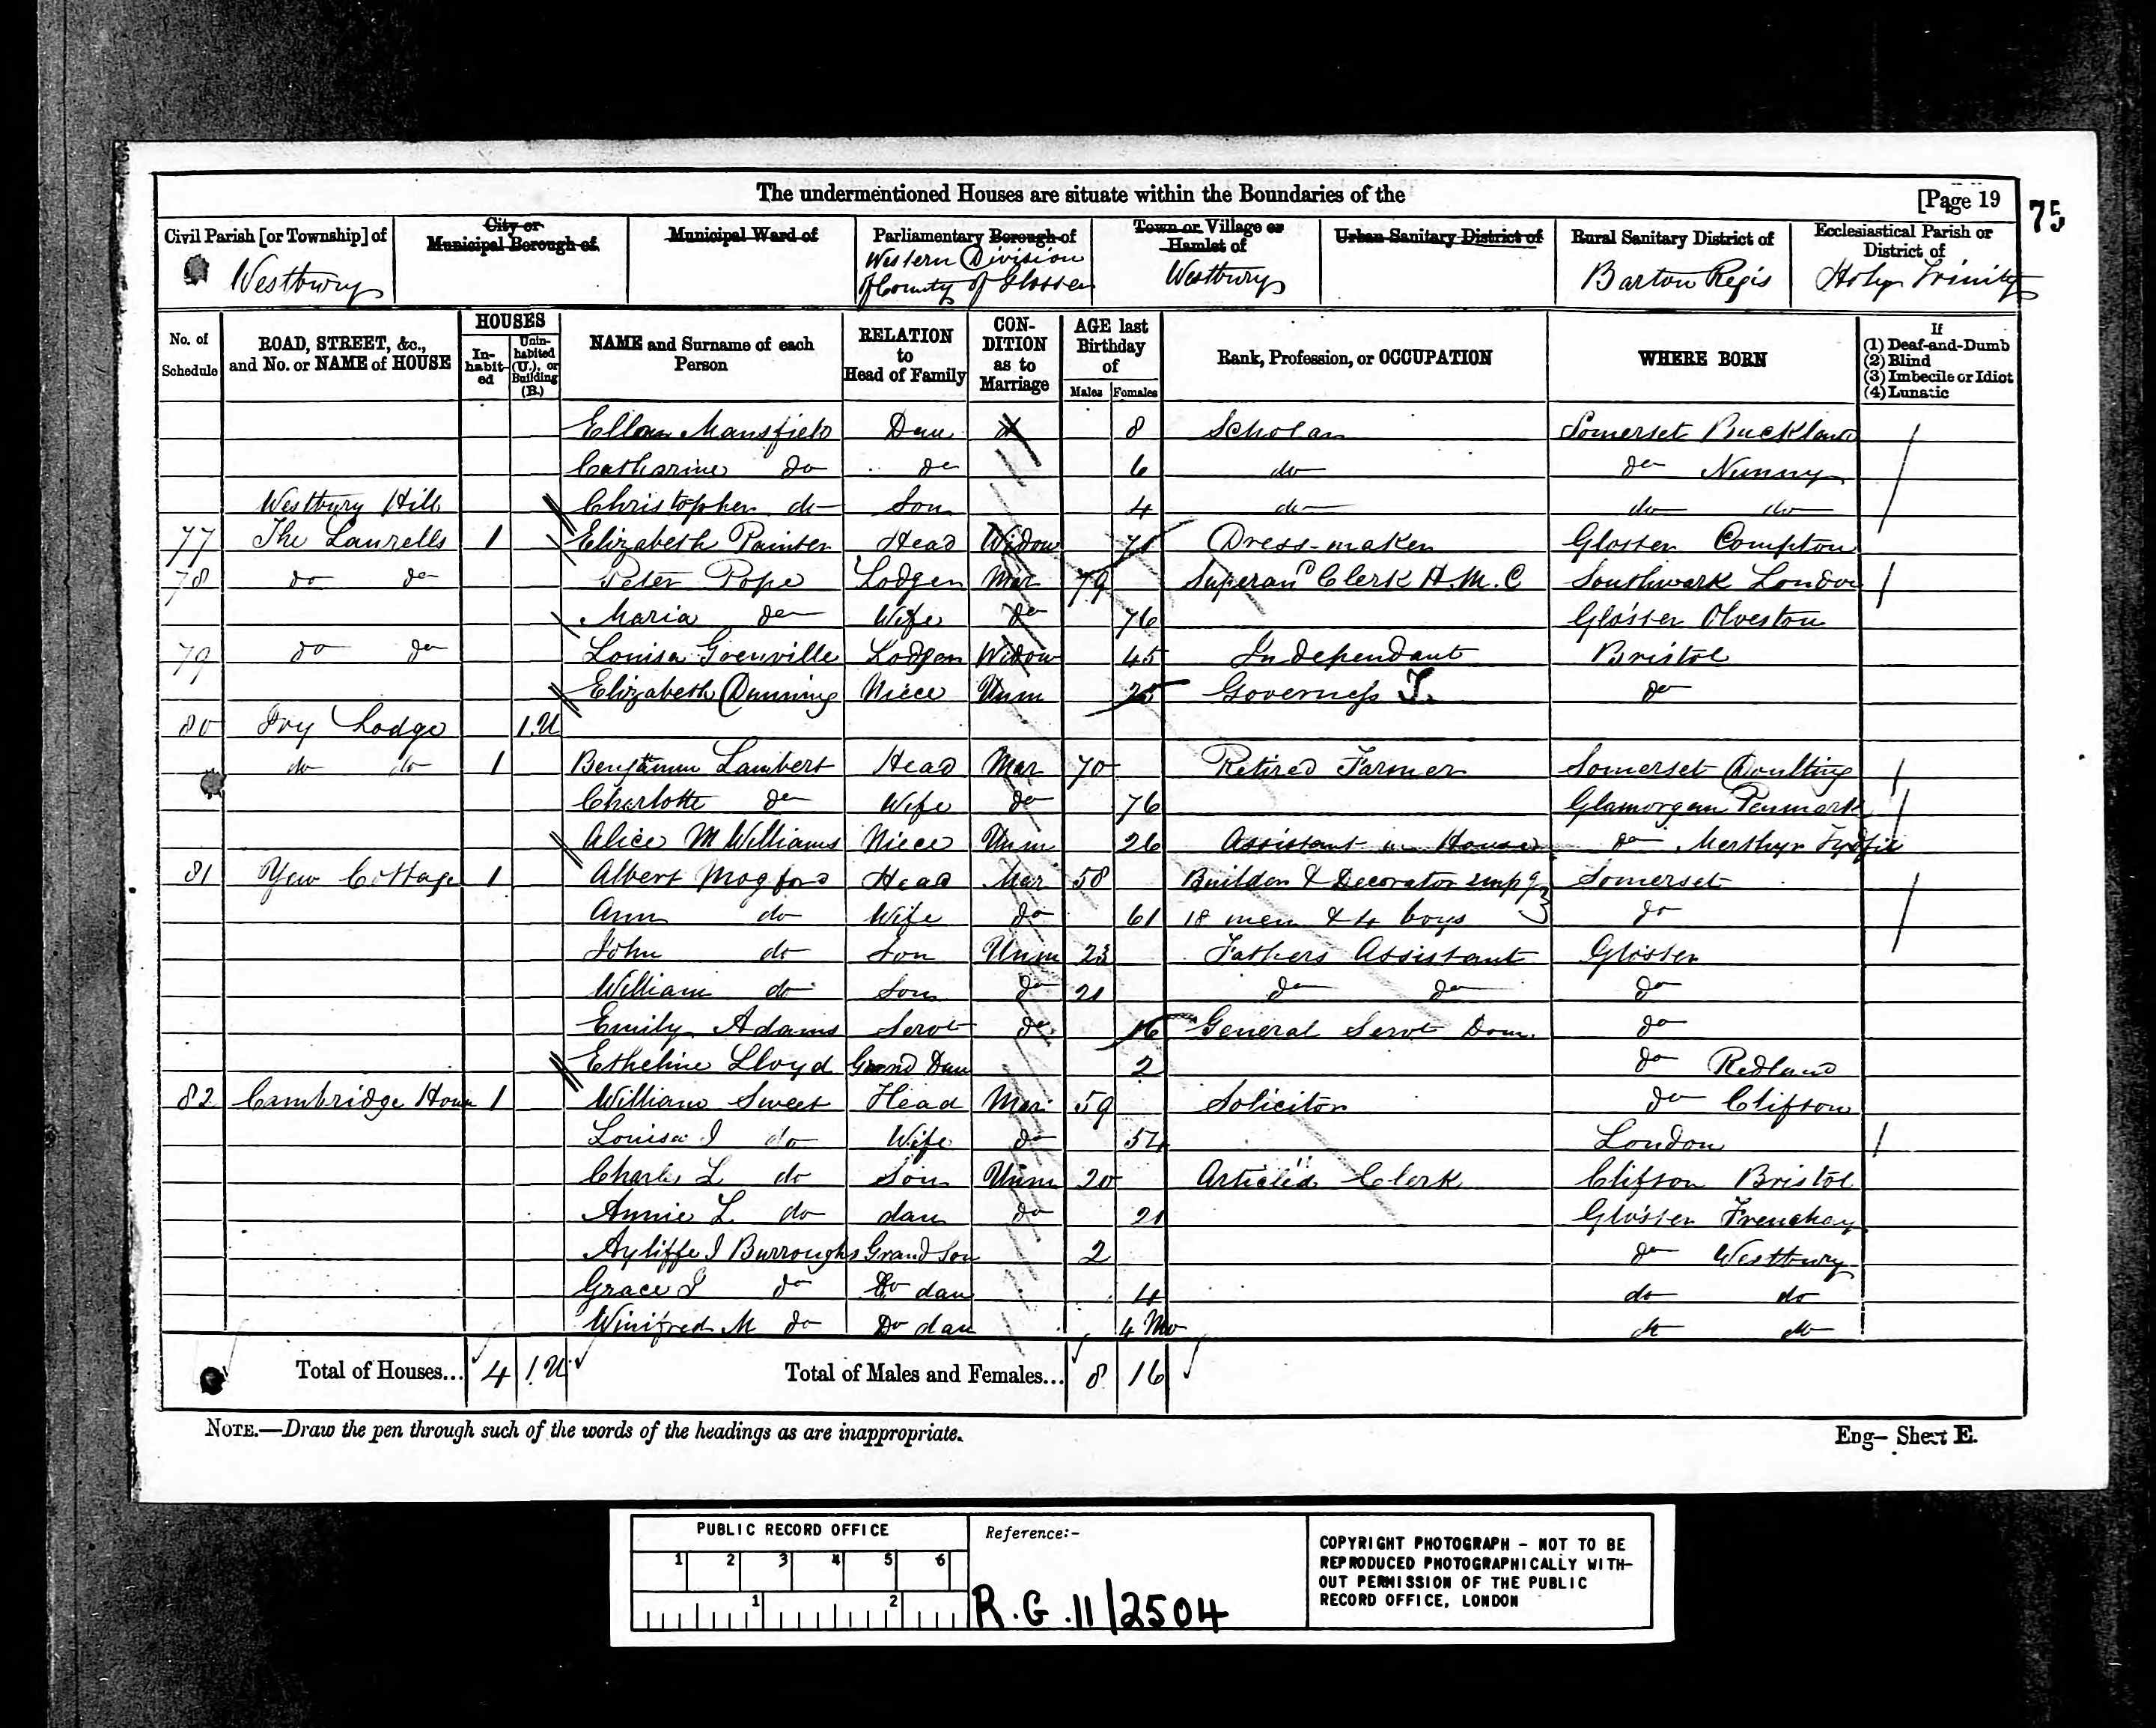 The undermentioned Houses are situate within the Boundaries of the
[Page 19
75
Civil Parish [or Township] of
Westbury
City or Municipal Borough of
Municipal Ward of
Parliamentary Borough of
Western Division
of County of Gloster
Town or Village or Hamlet of
Westbury
Urban Sanitary District of
Rural Sanitary District of
Barton Regis
Ecclesiastical Parish or District of
Holy Trinity
No. of Schedule
ROAD, STREET, &c., and No. or NAME of HOUSE
HOUSES
In-habit-ed
Unin-habited (U.), or Building (B.)
NAME and Surname of each Person
RELATION to Head of Family
CON-DITION as to Marriage
AGE last Birthday of
Males
Females
Rank, Profession, or OCCUPATION
WHERE BORN
If
(1) Deaf-and-Dumb
(2) Blind
(3) Imbecile or Idiot
(4) Lunatic
Ellen Mansfield Dau 8 Scholar Somerset Buckland
Catharine do do 6 do do Nunny
Westbury Hill Christopher do Son 4 do do do
77 The Laurells 1 Elizabeth Painter Head Widow 71 Dress-maker Gloster Compton
78 do do Peter Pope Lodger Mar 79 Superand Clerk H.M.C Southwark London
Maria do Wife do 76 Gloster Olveston
79 do do Louisa Grenville Lodger Widow 45 Independant Bristol
Elizabeth Dunning Niece Unm 25 Governess T. do
80 Ivy Lodge 1.U
do do 1 Benjamin Lambert Head Mar 70 Retired Farmer Somerset Doulting
Charlotte do Wife do 76 Glamorgan Penmark
Alice M Williams Niece Unm 26 Assistant in House do Merthyr Tydfil
81 Yew Cottage 1 Albert Mogford Head Mar 58 Builder & Decorator empg Somerset
Ann do Wife do 61 18 men & 4 boys do
John do Son Unm 23 Fathers Assistant Gloster
William do Son do 21 do do do
Emily Adams Servt do 16 General Servt Dom. do
Estheline Lloyd Grand Dau 2 do Redland
82 Cambridge House 1 William Sweet Head Mar 59 Solicitor do Clifton
Louisa I do Wife do 54 London
Charles L do Son Unm 20 Articled Clerk Clifton Bristol
Annie L do dau do 21 Gloster Frenchay
Ayliffe I Burroughs Grand Son 2 do Westbury
Grace I do Do dau 4 do do
Winifred M do Do dau 4 Mo do do
Total of Houses... 4 1.U Total of Males and Females... 8 16
NOTE.—Draw the pen through such of the words of the headings as are inappropriate.
Eng— Sheet E.
PUBLIC RECORD OFFICE
1 2 3 4 5 6
1 2
Reference:-
R.G. 11/2504
COPYRIGHT PHOTOGRAPH - NOT TO BE
REPRODUCED PHOTOGRAPHICALLY WITH-
OUT PERMISSION OF THE PUBLIC
RECORD OFFICE, LONDON